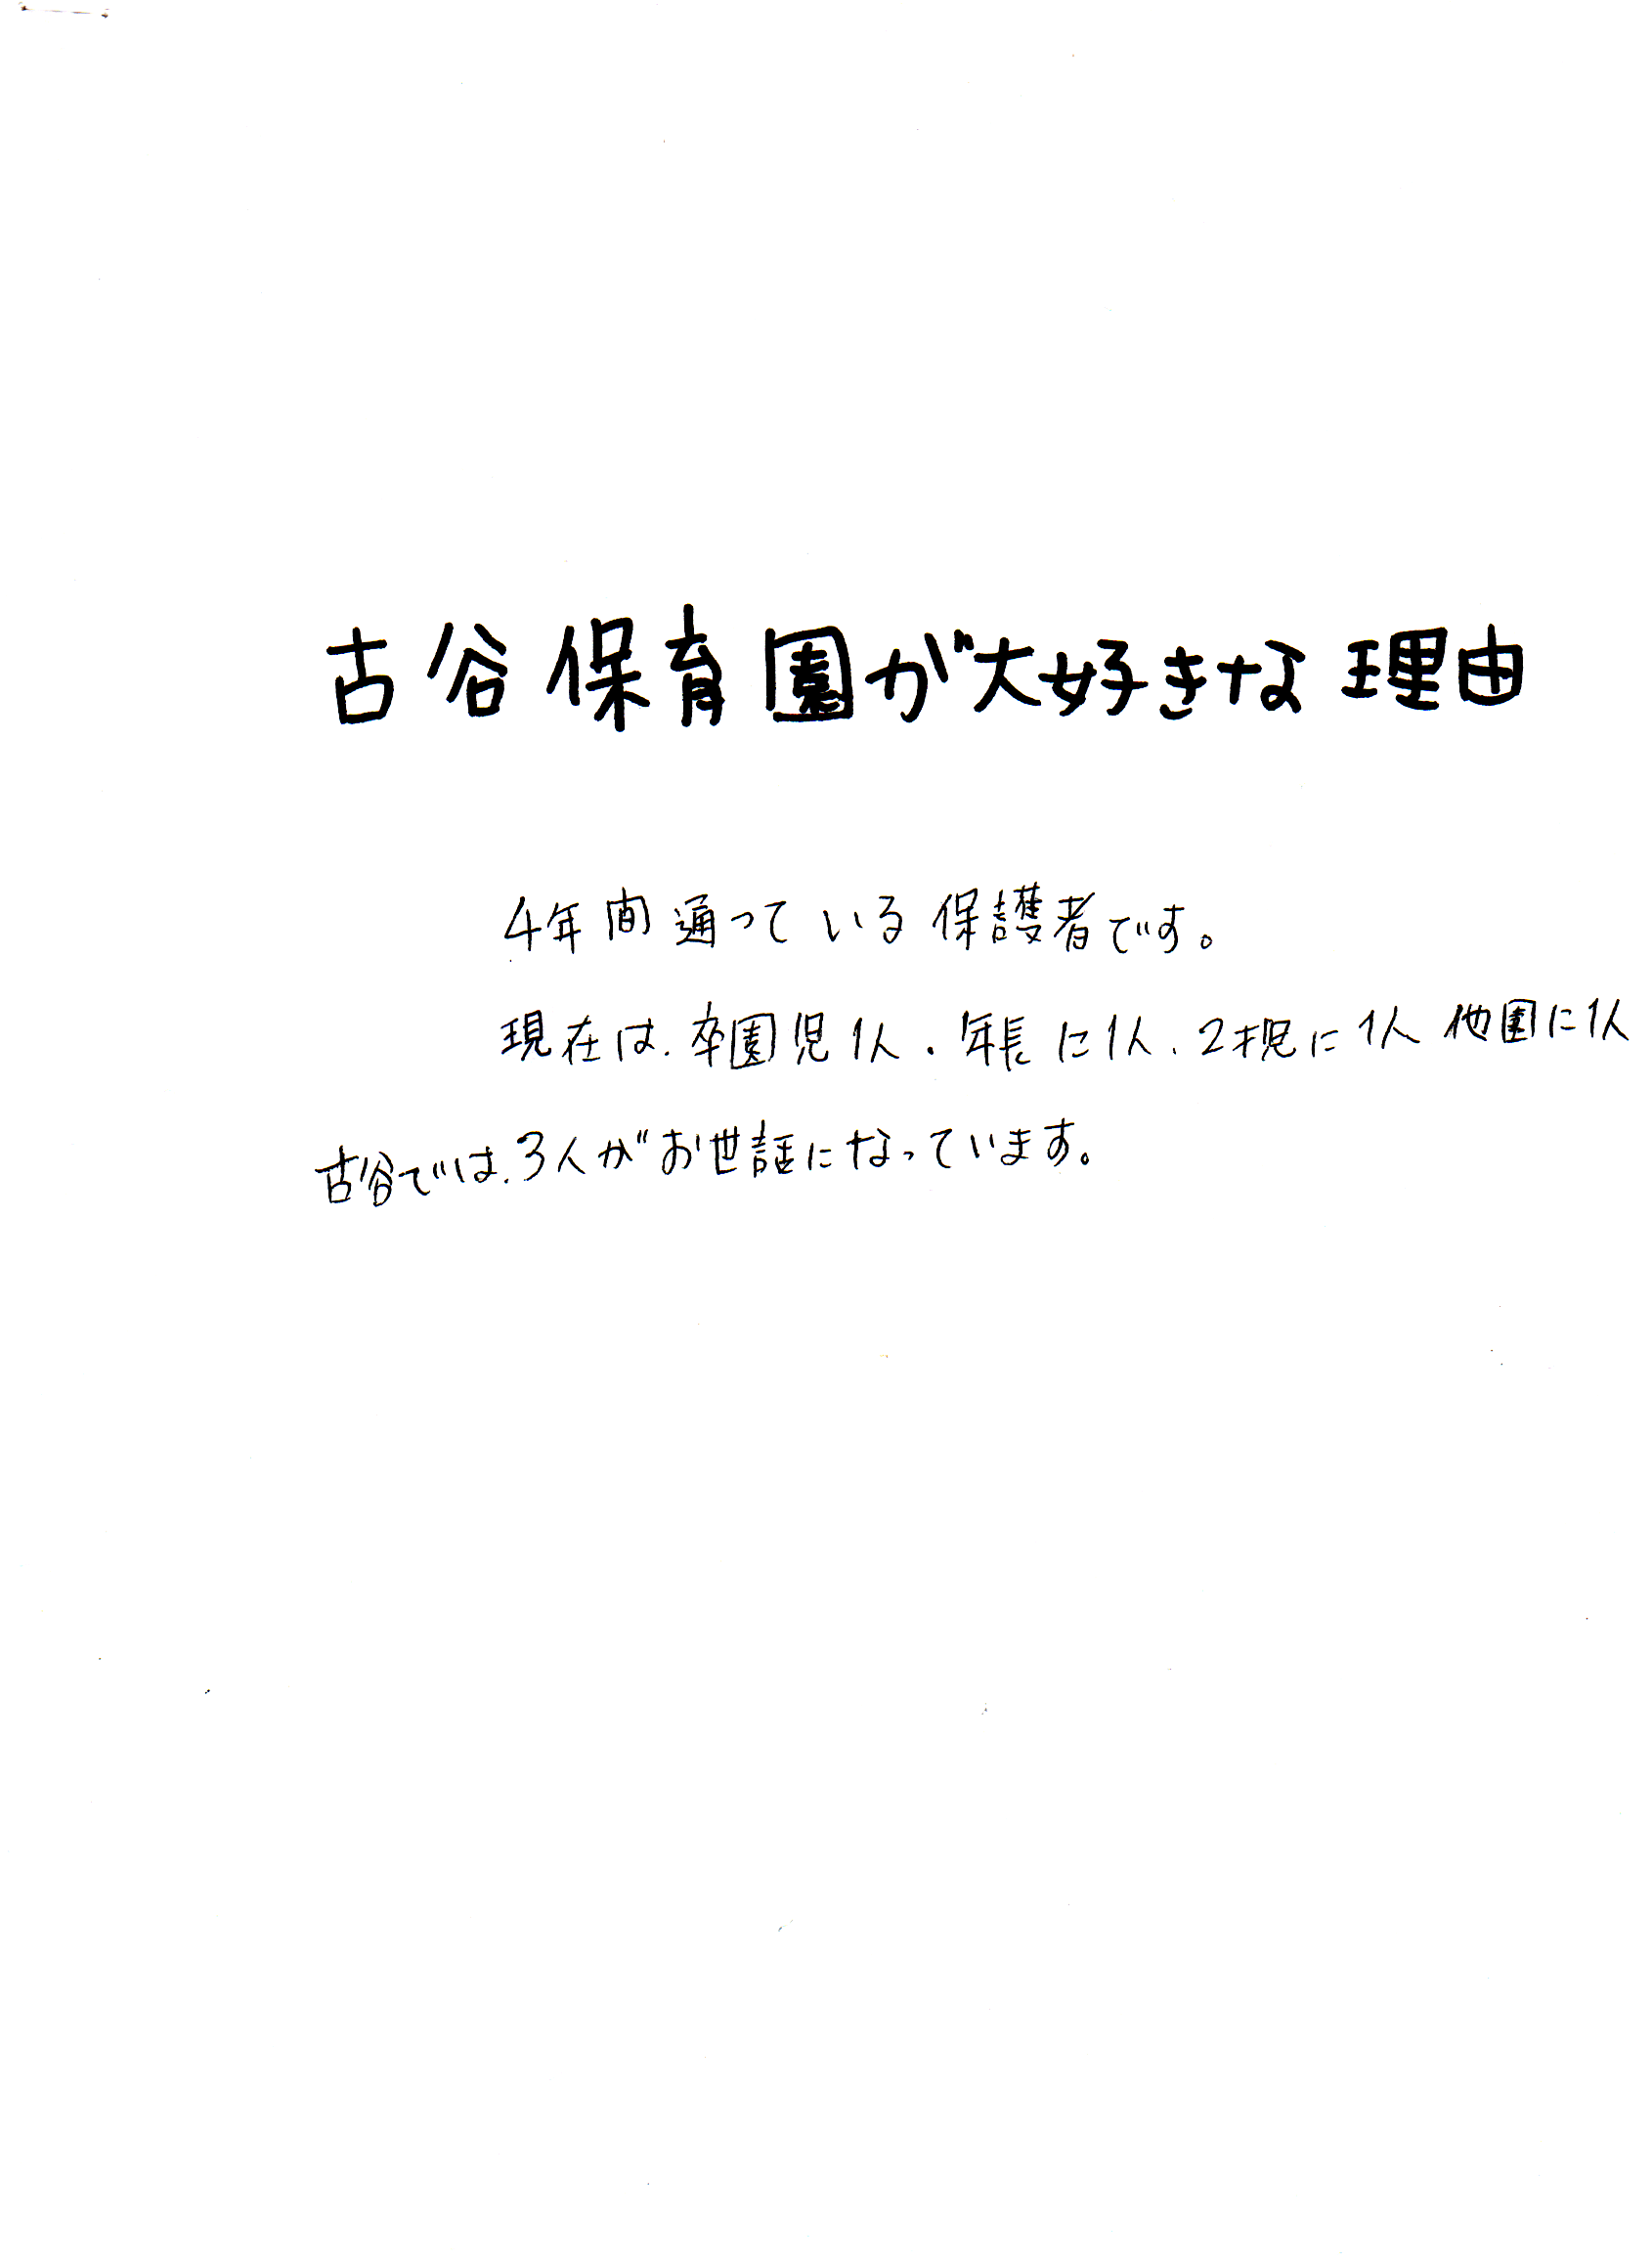 古谷保育園が大好きな理由
4年間通っている保護者です。
現在は、卒園児1人、年長に1人、2才児に1人 他園に1人
古谷では、3人がお世話になっています。